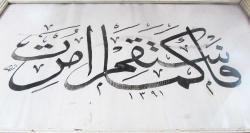 فاستقم كما امرت
١٣٩١